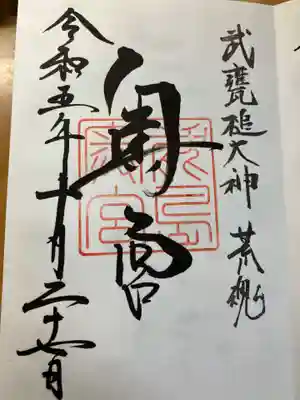 武甕槌大神 荒魂
奥宮
鹿島
奥宮
令和五年十一月二十七日